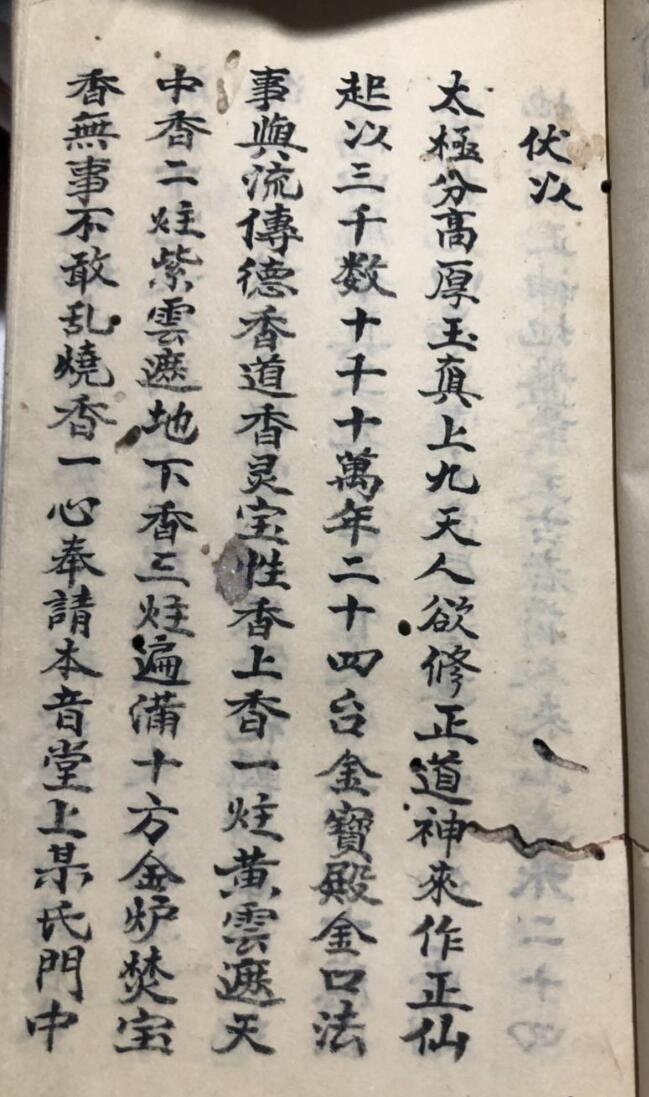 伏以
太極分高厚玉真上九天人欲修正道神來作正仙
起以三千数十千十萬年二十四台金寶殿金口法
事與流傳德香道香灵宝性香上香一炷黃雲遮天
中香二炷紫雲遮地下香三炷遍満十方金炉焚宝
香無事不敢乱燒香一心奉請本音堂上某氏門中